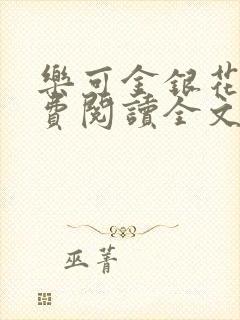 樂可金銀花
費閱讀全文
巫菁